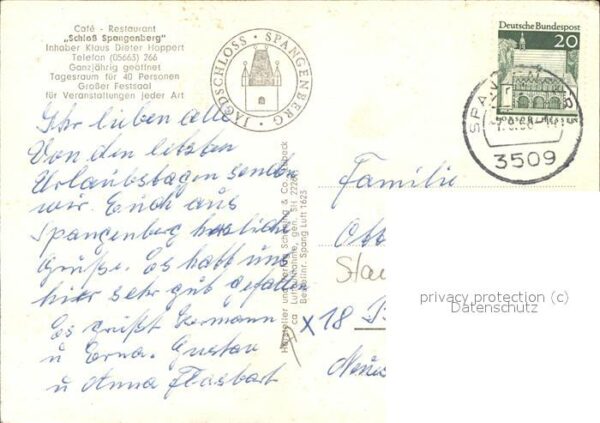 Café - Restaurant
„Schloß Spangenberg"
Inhaber Klaus Dieter Hoppert
Telefon (05663) 266
Ganzjährig geöffnet
Tagesraum für 40 Personen
Großer Festsaal
für Veranstaltungen jeder Art
JAGDSCHLOSS · SPANGENBERG ·
Deutsche Bundespost
20
3509
Ihr lieben alle
Von den letzten
Urlaubstagen senden
wir Euch aus
Spangenberg herzliche
Grüße. Es hatt uns
hier sehr gut gefallen
Es grüßt Hermann
u Erna. Gustav
u Anna Flasbart
Hersteller und Verlag Schöning & Co.
Luftaufnahme, gen. SH
Bestellnr. Spang Luft 1625
Familie
Otto
x 18
privacy protection (c)
Datenschutz